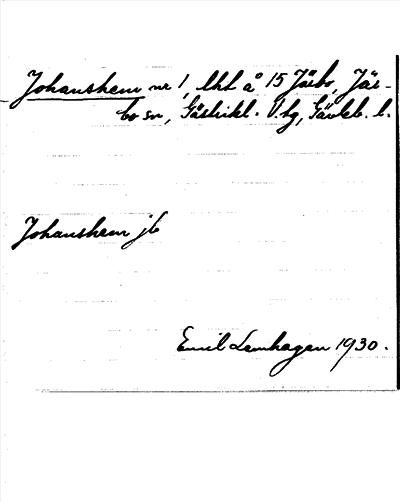 Johanshem nr 1, lht å 15 Järbo, Jär-
bo sn, Gästrikl. V. tg, Gävleb. l.
Johanshem jb
Emil Lenhagen 1930.